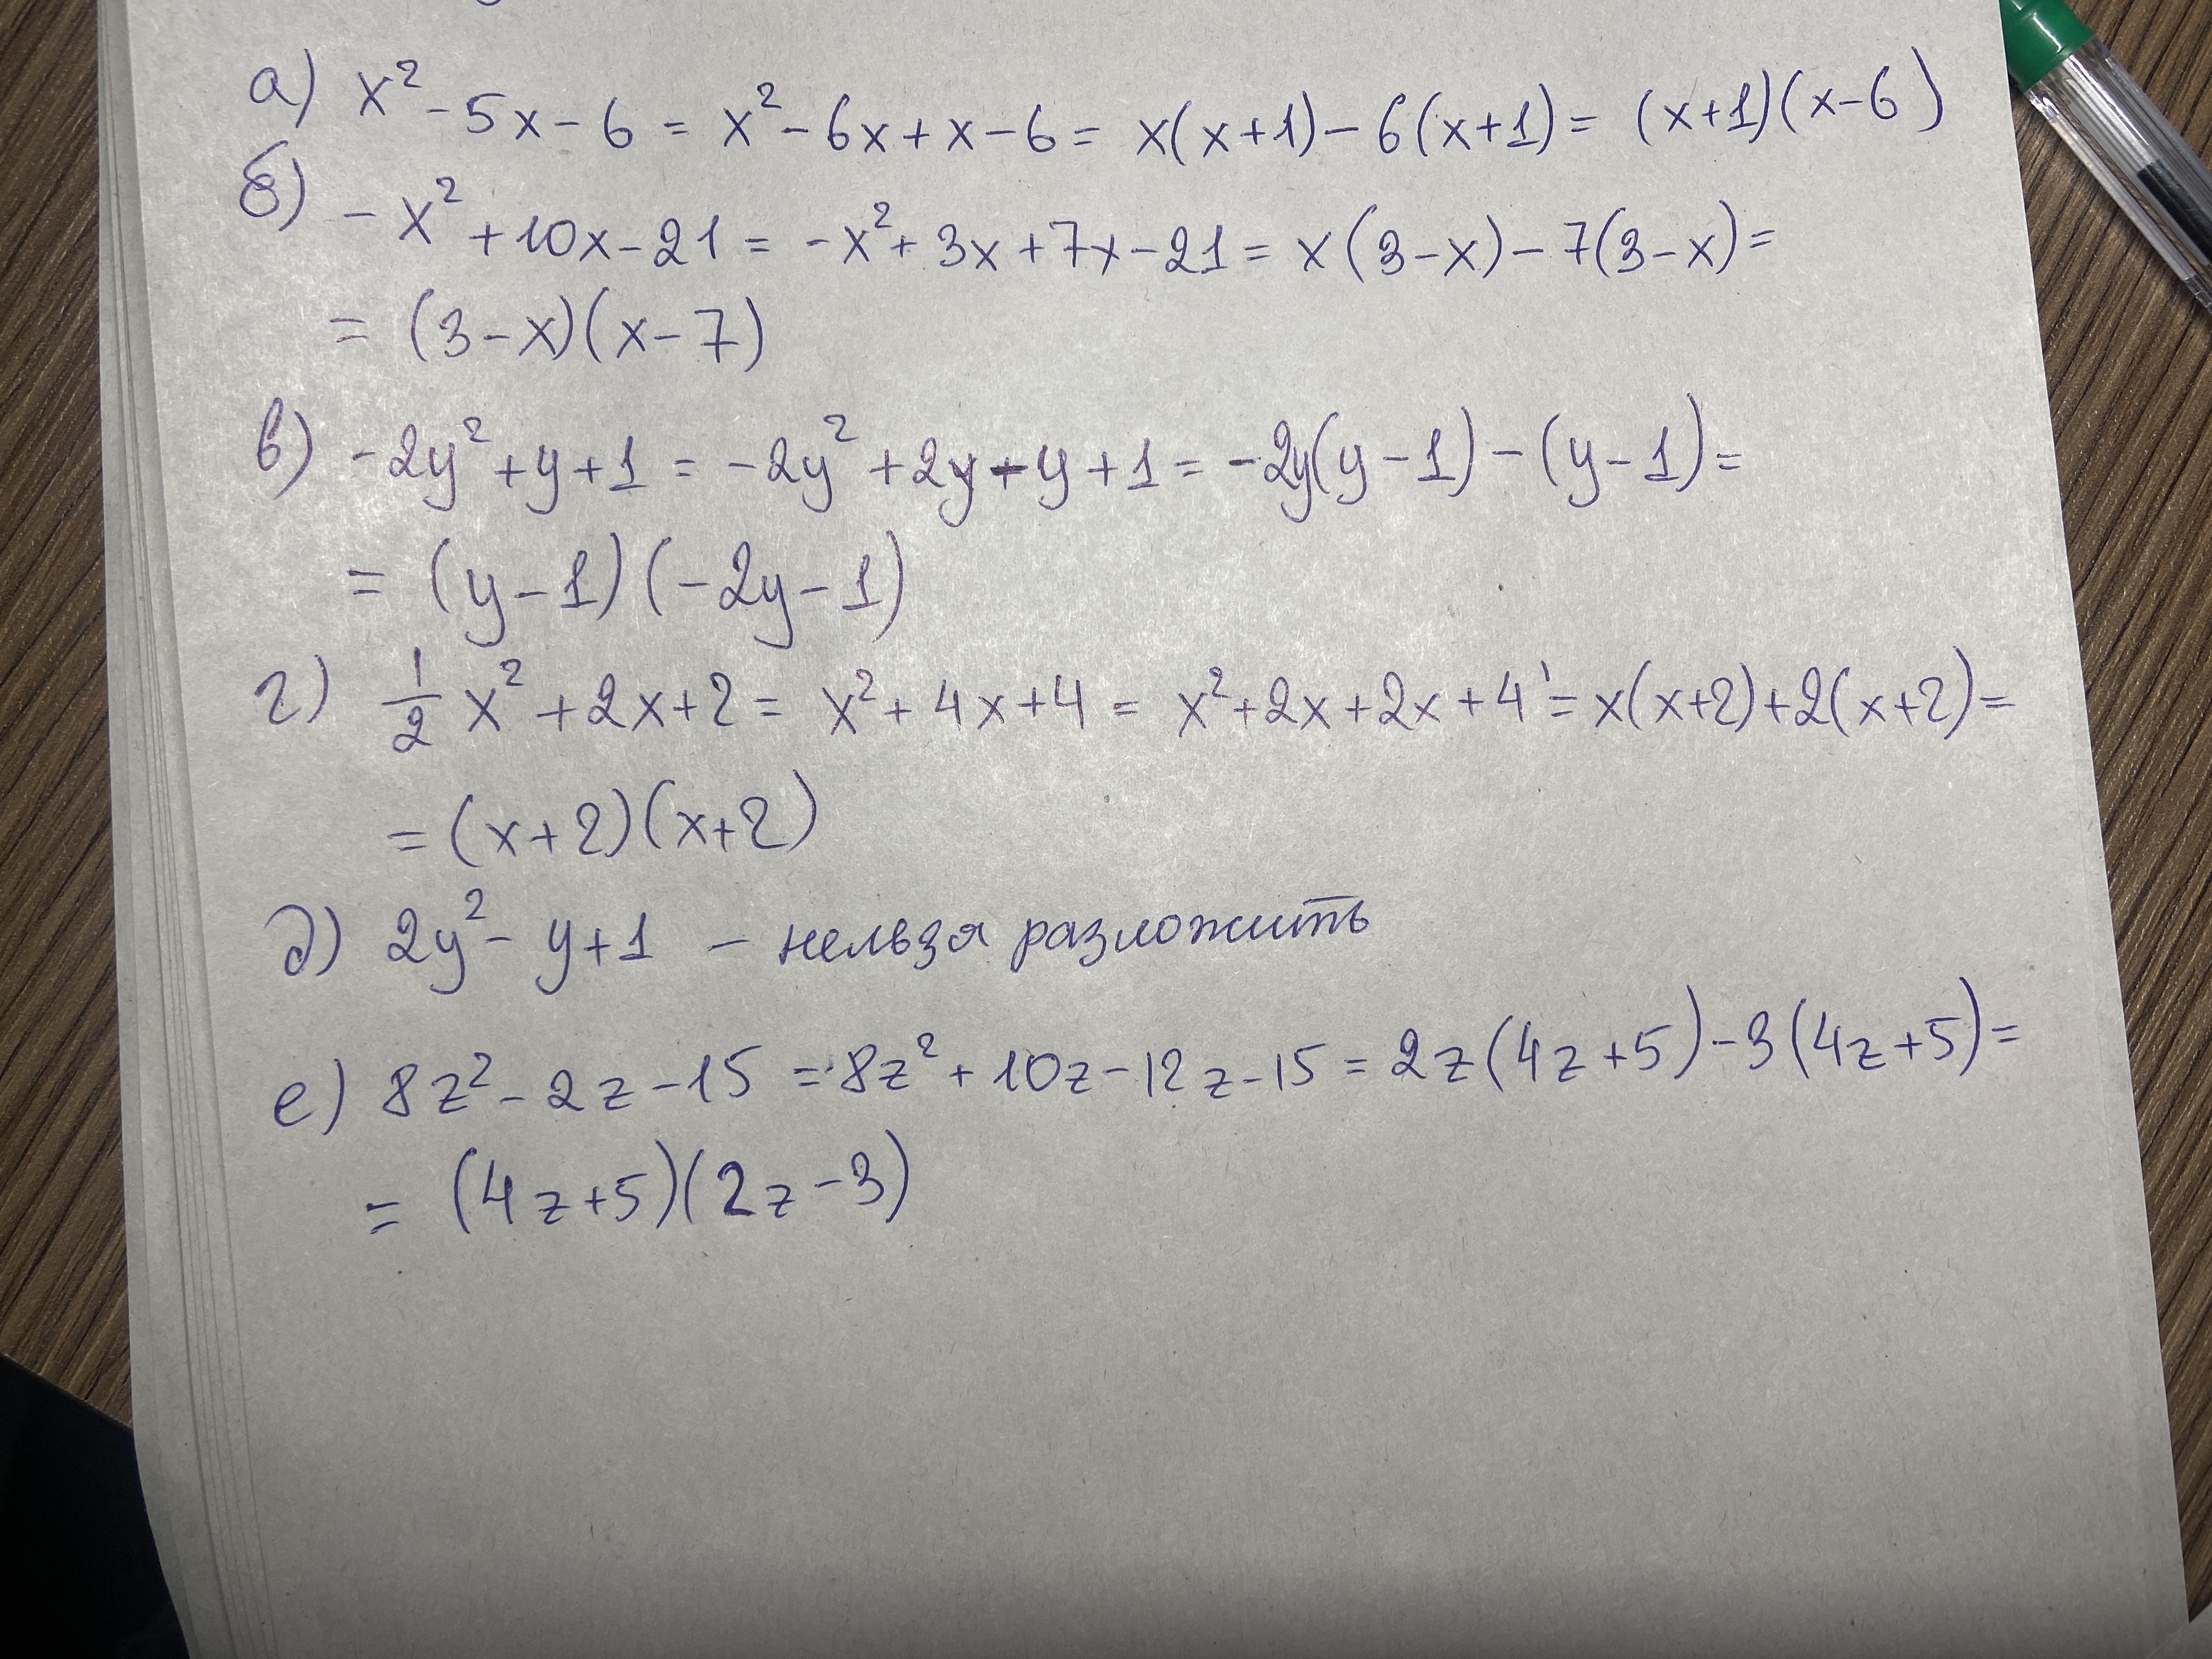 а) x² - 5x - 6 = x² - 6x + x - 6 = x(x+1) - 6(x+1) = (x+1)(x-6)
б) - x² + 10x - 21 = -x² + 3x + 7x - 21 = x(3-x) - 7(3-x) =
= (3-x)(x-7)
в) -2y² + y + 1 = -2y² + 2y - y + 1 = -2y(y-1) - (y-1) =
= (y-1)(-2y-1)
г) 1/2 x² + 2x + 2 = x² + 4x + 4 = x² + 2x + 2x + 4 = x(x+2) + 2(x+2) =
= (x+2)(x+2)
д) 2y² - y + 1 - нельзя разложить
е) 8z² - 2z - 15 = 8z² + 10z - 12z - 15 = 2z(4z+5) - 3(4z+5) =
= (4z+5)(2z-3)